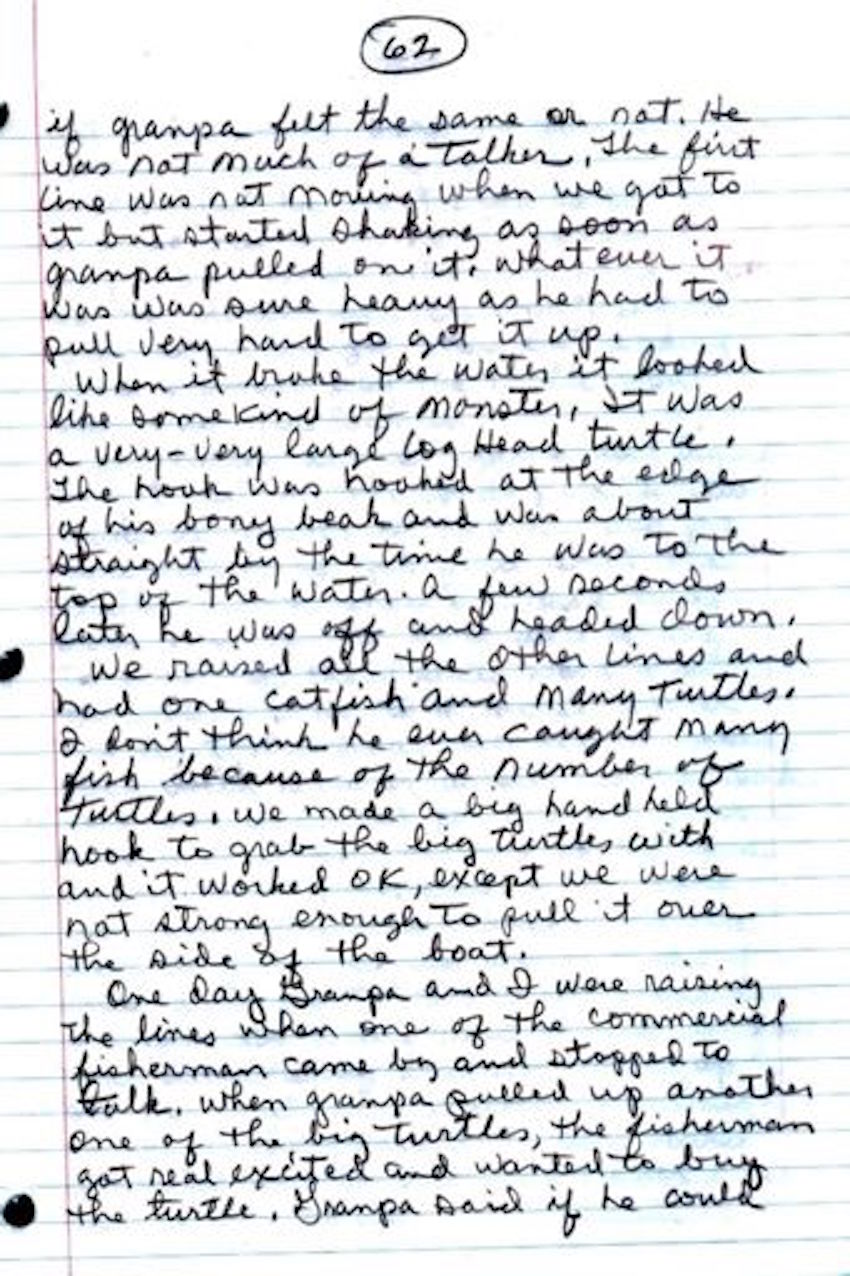 62
if granpa felt the same or not. He
was not much of a talker. The first
line was not moving when we got to
it but started shaking as soon as
granpa pulled on it. whatever it
was was sure heavy as he had to
pull very hard to get it up.
When it broke the water it looked
like somekind of monster, It was
a very-very large Log Head turtle.
The hook was hooked at the edge
of his bony beak and was about
straight by the time he was to the
top of the water. A few seconds
later he was off and headed down.
We raised all the other lines and
had one catfish and many turtles.
I don't think he ever caught many
fish because of the number of
turtles. we made a big hand held
hook to grab the big turtles with
and it worked OK, except we were
not strong enough to pull it over
the side of the boat.
One day Granpa and I were raising
the lines when one of the commercial
fisherman came by and stopped to
talk. when granpa pulled up another
one of the big turtles, the fisherman
got real excited and wanted to buy
the turtle. Granpa said if he could